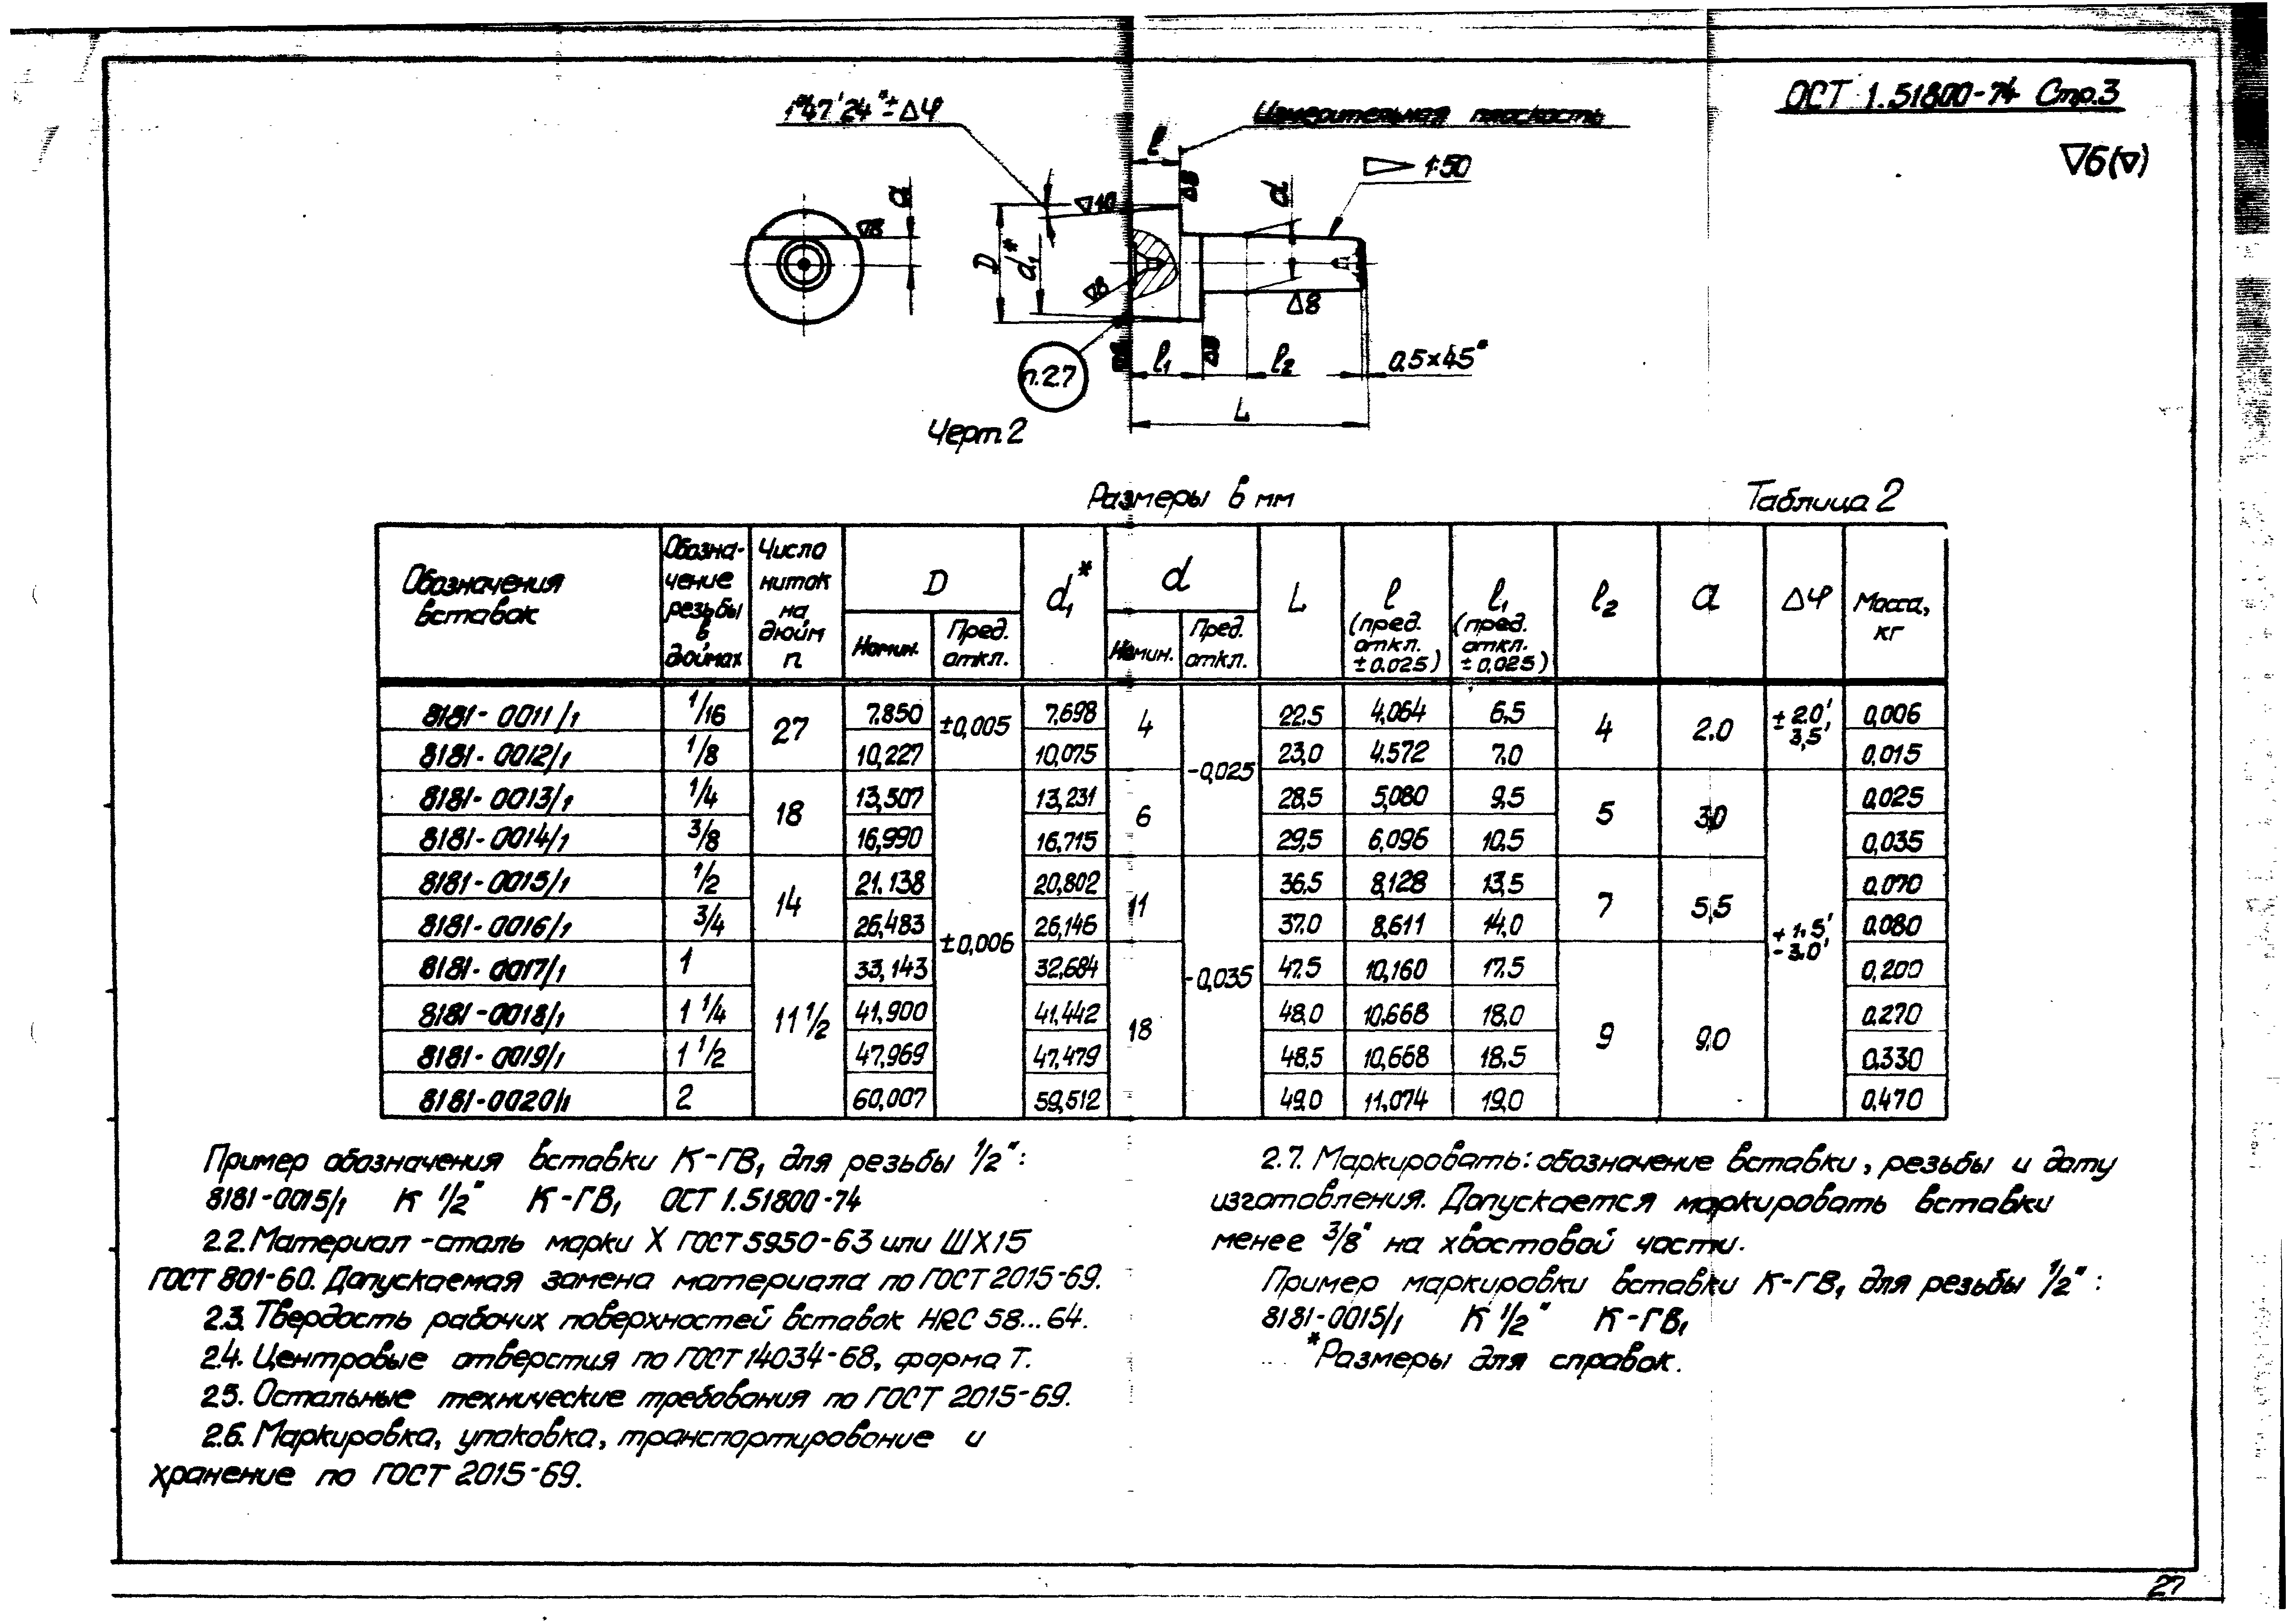 ОСТ 1.51800-74 Стр.3
▽6(▽)
1°47'24"± Δφ
Измерительная плоскость
l
1:50
a
▽8
▽10
▽8
d
D
d₁*
▽8
▽8
п.2.7
l₁
▽8
l₂
0,5×45°
L
Черт.2
Размеры в мм
Таблица 2
Обозначения вставок | Обозначение резьбы в дюймах | Число ниток на дюйм n | D Номин. | D Пред. откл. | d₁* | d Номин. | d Пред. откл. | L | l (пред. откл. ±0.025) | l₁ (пред. откл. ±0,025) | l₂ | a | Δφ | Масса, кг
8181-0011/1 | 1/16 | 27 | 7.850 | ±0,005 | 7,698 | 4 | -0,025 | 22.5 | 4,064 | 6,5 | 4 | 2.0 | | 0,006
8181-0012/1 | 1/8 | 10,227 | 10,075 | 23,0 | 4.572 | 7,0 | 0,015
8181-0013/1 | 1/4 | 18 | 13,507 | ±0,006 | 13,231 | 6 | 28,5 | 5,080 | 9,5 | 5 | 3,0 | | 0.025
8181-0014/1 | 3/8 | 16,990 | 16,715 | 29,5 | 6,096 | 10,5 | 0,035
8181-0015/1 | 1/2 | 14 | 21.138 | 20,802 | 11 | -0,035 | 36.5 | 8,128 | 13,5 | 7 | 5,5 | 0.070
8181-0016/1 | 3/4 | 26,483 | 26,146 | 37.0 | 8,611 | 14,0 | 0.080
8181-0017/1 | 1 | 11 1/2 | 33,143 | 32,684 | 18 | 47.5 | 10,160 | 17.5 | 9 | 9,0 | 0,200
8181-0018/1 | 1 1/4 | 41,900 | 41,442 | 48,0 | 10,668 | 18,0 | 0,270
8181-0019/1 | 1 1/2 | 47,969 | 47,479 | 48,5 | 10,668 | 18,5 | 0.330
8181-0020/1 | 2 | 60,007 | 59,512 | 49,0 | 11,074 | 19,0 | 0,470
Пример обозначения вставки К-ГВ₁ для резьбы 1/2":
8181-0015/1 К 1/2" К-ГВ₁ ОСТ 1.51800-74
2.2. Материал - сталь марки Х ГОСТ 5950-63 или ШХ15
ГОСТ 801-60. Допускаемая замена материала по ГОСТ 2015-69.
2.3. Твердость рабочих поверхностей вставок HRC 58...64.
2.4. Центровые отверстия по ГОСТ 14034-68, форма Т.
2.5. Остальные технические требования по ГОСТ 2015-69.
2.6. Маркировка, упаковка, транспортирование и
хранение по ГОСТ 2015-69.
2.7. Маркировать: обозначение вставки, резьбы и дату
изготовления. Допускается маркировать вставки
менее 3/8" на хвостовой части.
Пример маркировки вставки К-ГВ₁ для резьбы 1/2":
8181-0015/1 К 1/2" К-ГВ₁
*Размеры для справок.
27